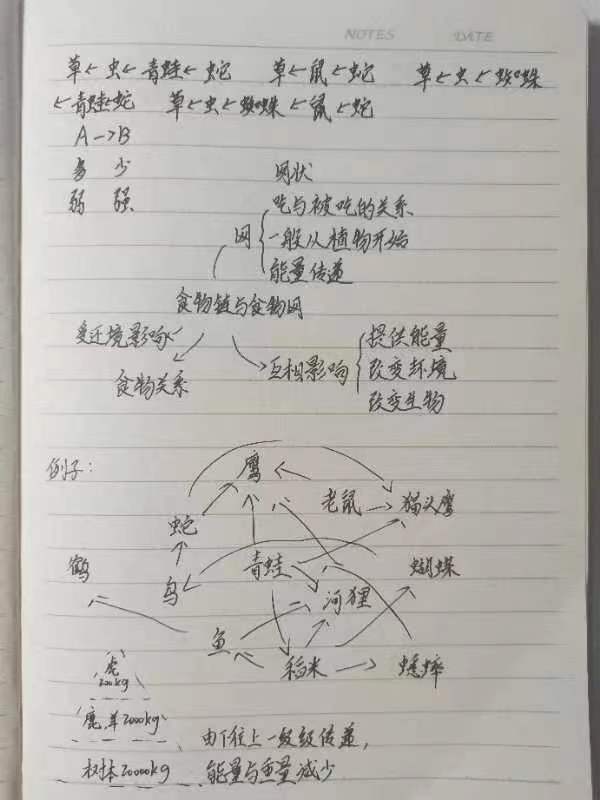 NOTES DATE
草←虫←青蛙←蛇 草←鼠←蛇 草←虫←蜘蛛
←青蛙←蛇 草←虫←蜘蛛←鼠←蛇
A→B
多 少 网状
弱 强 吃与被吃的关系
网 一般从植物开始
能量传递
食物链与食物网
受环境影响 提供能量
互相影响 改变环境
食物关系 改变生物
例子:
鹰
老鼠→猫头鹰
蛇
鹤 青蛙 蝴蝶
鸟 河狸
鱼
稻米→蟋蟀
虎
200kg
鹿,羊2000kg
由下往上一级级传递,
树木20000kg 能量与重量减少